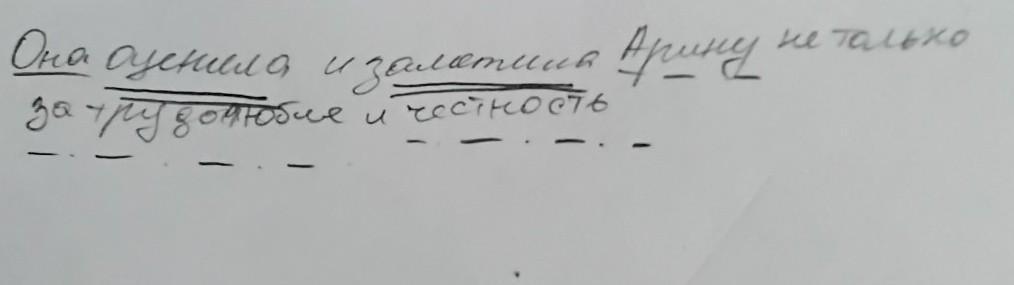 Она оценила и заметила Арину не только
за трудолюбие и честность